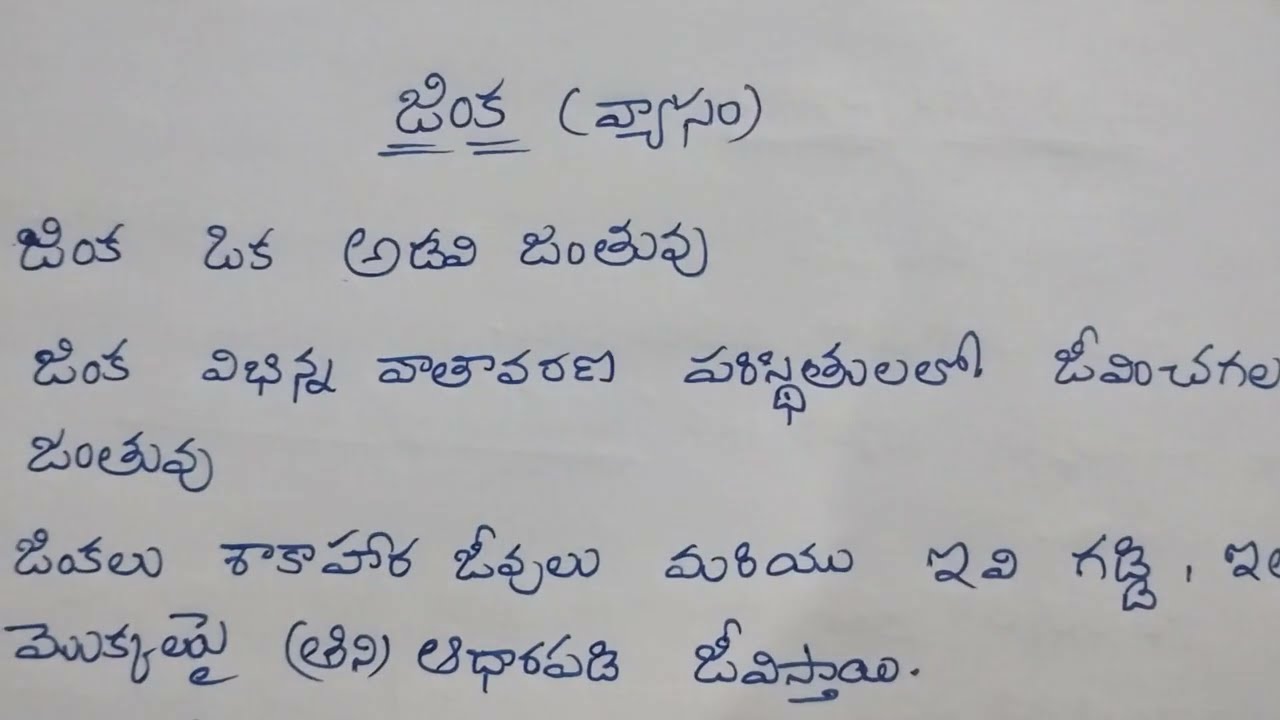 జింక (వ్యాసం)
జింక ఒక అడవి జంతువు
జింక విభిన్న వాతావరణ పరిస్థితులలో జీవించగల
జంతువు
జింకలు శాకాహార జీవులు మరియు ఇవి గడ్డి,
మొక్కలపై (తిని) ఆధారపడి జీవిస్తాయి.